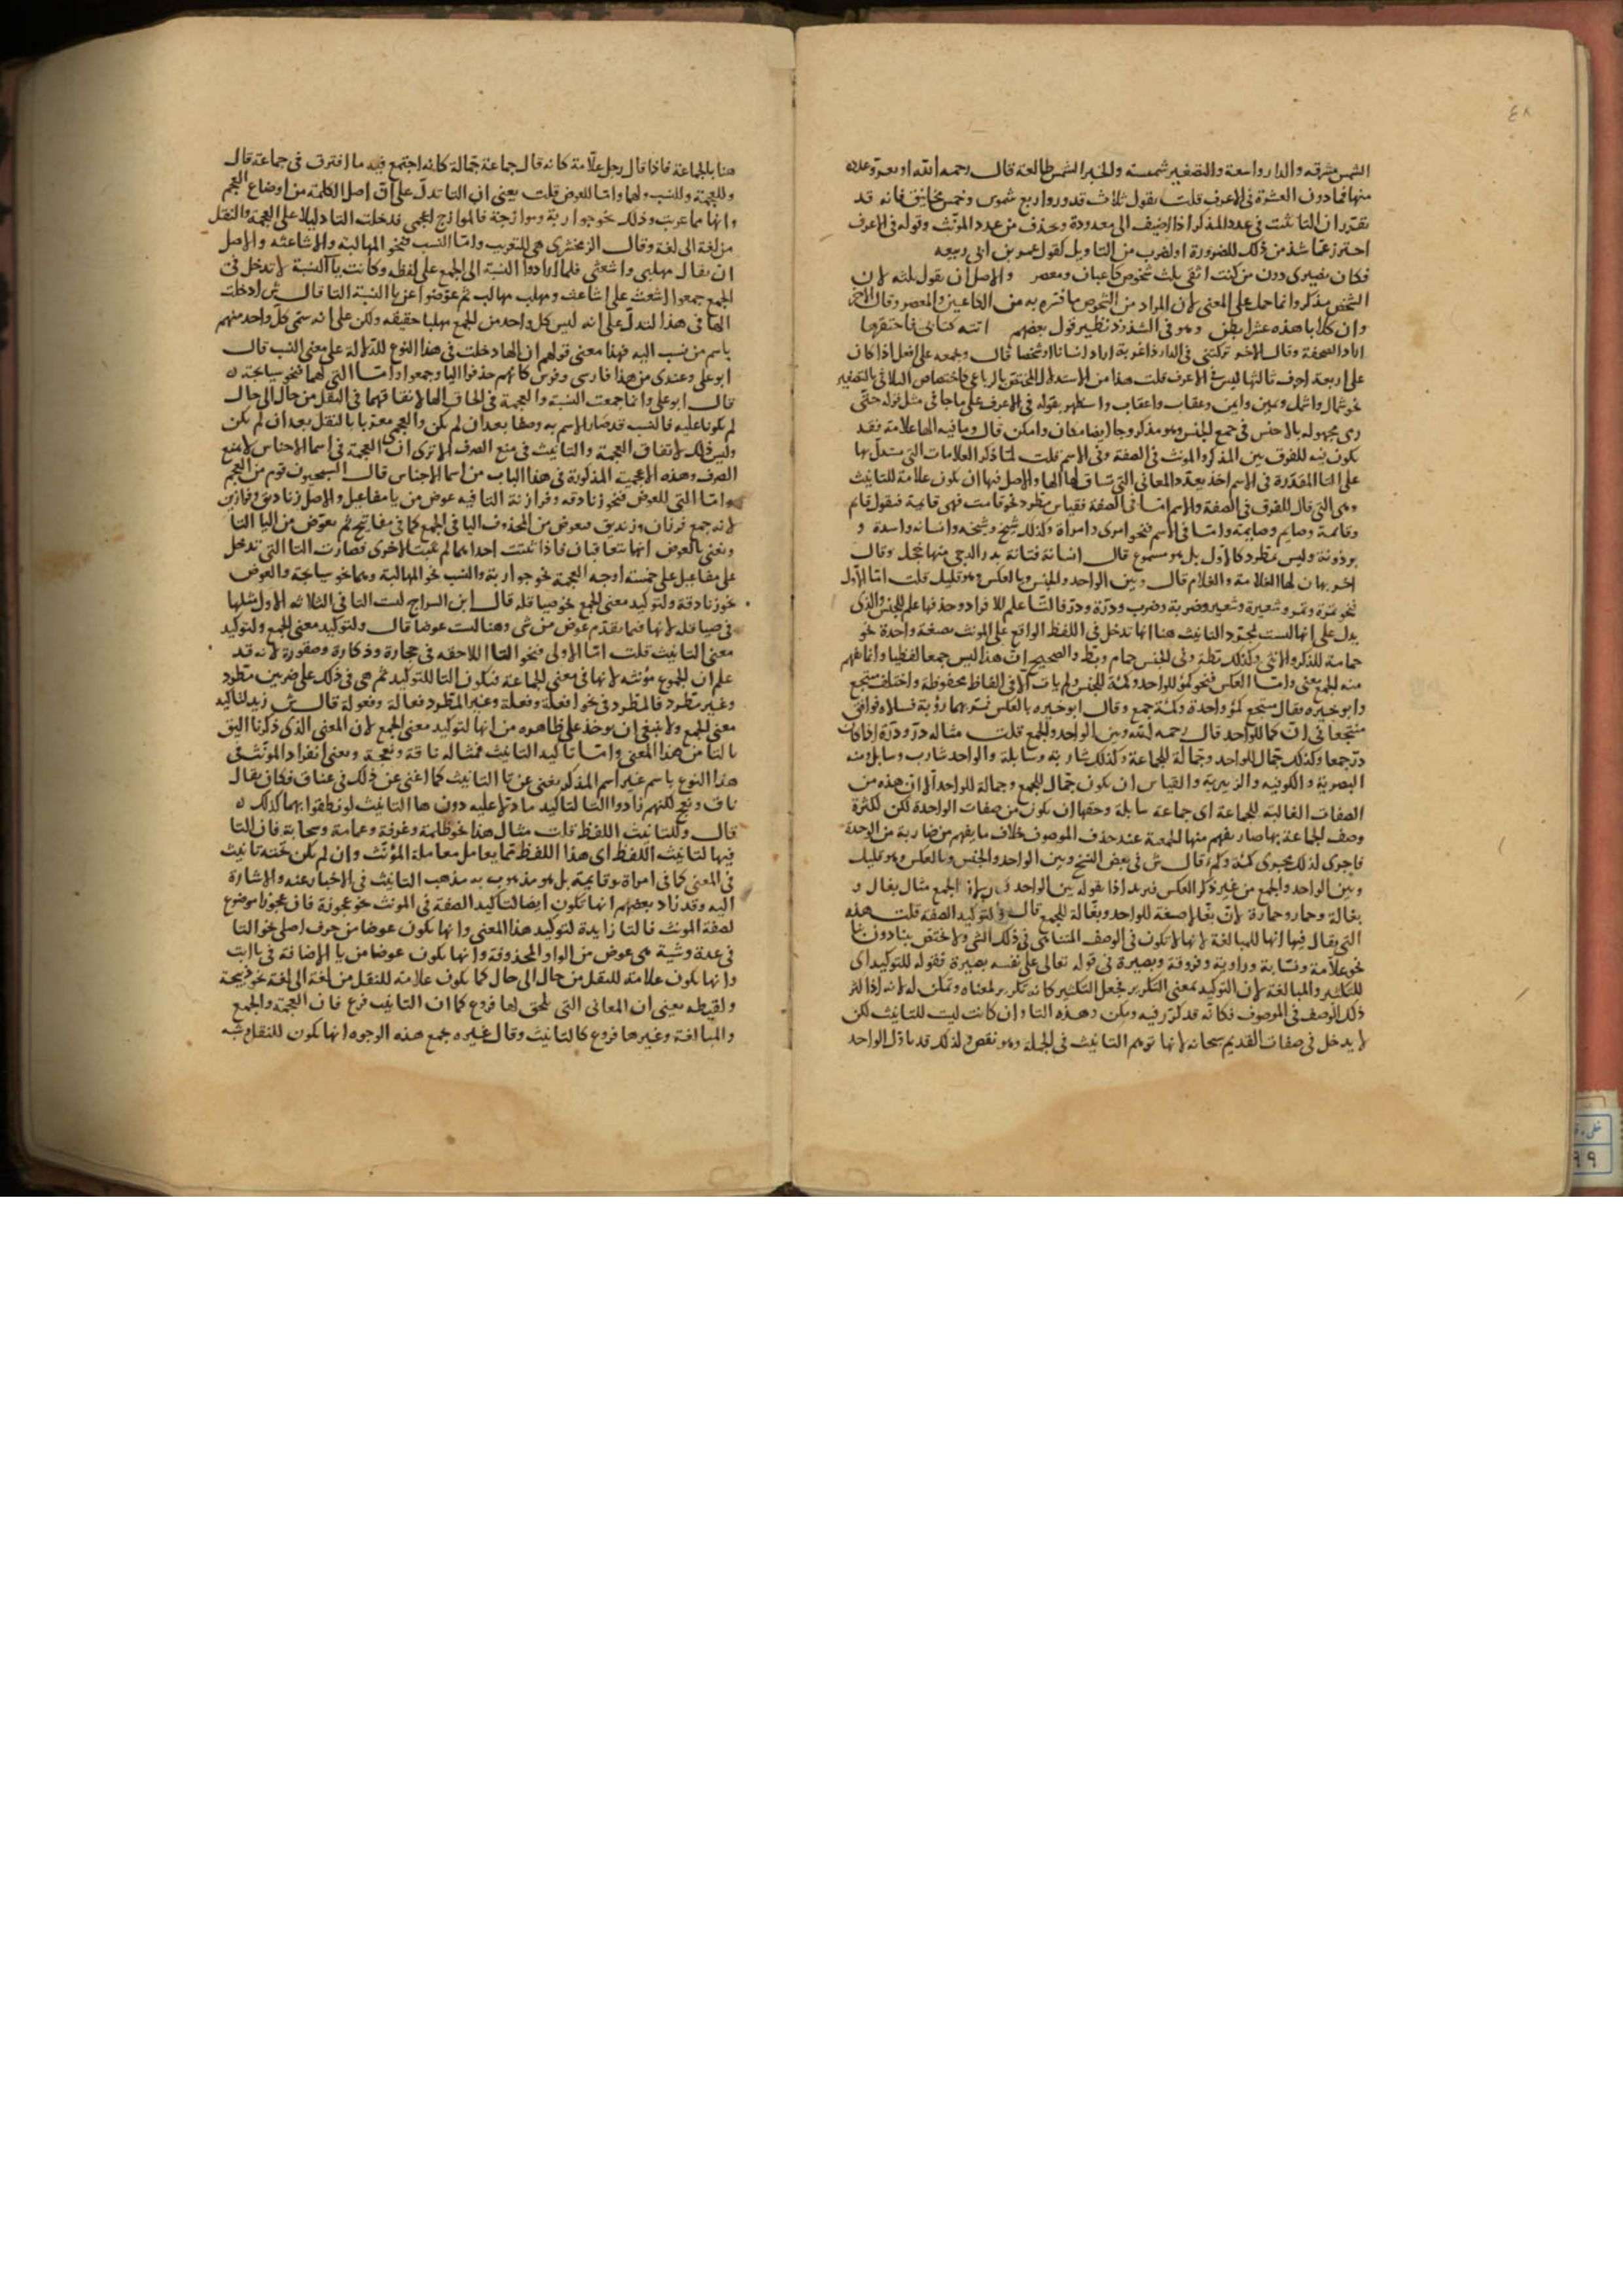 ٤٨
الشمس مشرقه والدار واسعة والتصغير شمسته والخبر الشمس طالعة قال رحمه الله او بعرو عدده
منها فما دون العشرة في الاعرف قلت يقول ثلاث قدور واربع شموس وخمس فانه قد
تقرر ان التا تثبت في عدد المذكر اذا اضيف الى معدودة وتحذف من عدد المونث وقوله في الاعرف
احترز عما شذ من ذلك للضرورة او لضرب من التاويل كقول عمر بن ابي ربيعه
فكان نصيرى دون من كنت اتقى ثلث شخوص كاعبان ومعصر والاصل ان يقول ثلثه لان
الشخص مذكر وانما حمل على المعنى لان المراد من الشخوص ما فسره به من الكاعبين والمعصر وقال الاخر
وان كلابا هذه عشر ابطن وهو في الشذوذ نظير قول بعضهم اتته كتابى فاحتقرها
اراد الصحفة وقال الاخر تركتنى في الدار ذا غربة اراد انسانا او شخصا قال وجمعه على افعل اذا كان
على اربعة احرف ثالثها لين في الاعرف قلت هذا من الاستدلال المختص بالرباعى كاختصاص الثلاثى بالتصغير
نحو شمال واشمل ويمين وايمن وعقاب واعقاب واستظهر بقوله في الاعرف على ما جا في مثل قوله حتى
رمى مجهوله بالاجنن في جمع الجنين وهو مذكر وجا ايضا مكان وامكن قال وما فيه الها علامة فقد
يكون فيه للفرق بين المذكر والمونث في الصفة وفي الاسم قلت لما ذكر العلامات التي يستدل بها
على التا المقدرة في الاسم اخذ يعدد المعانى التى تساق لها الها والاصل فيها ان يكون علامة للتانيث
وهى التى قال للفرق في الصفة والاسم اما في الصفة فقياس مطرد نحو قامت فهى قايمة فيقول قايم
وقايمة وصايم وصايمة واما في الاسم فنحو امرى وامراة وكذلك شيخ وشيخه وانسانه واسدة و
برذونة وليس بمطرد كالاول بل هو مسموع قال انسانة فتانة بدر الدجى منها خجل وقال
اخر بهان لها الغلامة والغلام قال وبين الواحد والجنس وبالعكس وهو قليل قلت اما الاول
نحو تمرة وتمر وشعيرة وشعير وضربة وضرب ودرة ودر فالتا علم للافراد وحذفها علم للجنس والذى
يدل على انها ليست لمجرد التانيث هنا انها تدخل في اللفظ الواقع على المونث بصيغة واحدة نحو
حمامة للذكر والانثى وكذلك بطة وفي الجنس حمام وبط والصحيح ان هذا ليس جمعا لفظيا وانما يفهم
منه الجمع بمعنى واما العكس فنحو كمؤ للواحد وكمأة للجنس ولم يات الا في الفاظ محفوظة واختلف منتجع
وابو خيره فقال منتجع كمؤ واحدة وكمأة جمع وقال ابو خيره بالعكس فمر بهما رؤبة فسالاه فوافق
منتجعا في ان كما للواحد قال رحمه الله وبين الواحد والجمع قلت مثاله در ودرة اذا كان
در جمعا وكذلك جمال للواحد وجمالة للجماعة وكذلك شاربه وسابلة والواحد شارب وسابل ومنه
البصرية والكوفيه والزبيرية والقياس ان يكون جمال للجمع وجمالة للواحد الا ان هذه من
الصفات الغالبة للجماعة اى جماعة سابلة وحقها ان يكون من صفات الواحدة لكن لكثرة
وصف الجماعة بها صار يفهم منها الجمعية عند حذف الموصوف خلاف ما يفهم من ضاربة من الوحدة
فاجرى لذلك مجرى كمأة وكمؤ قال ش في بعض النسخ وبين الواحد والجنس وبالعكس وهو قليل
وبين الواحد والجمع من غير ذكر العكس فيريد اذا بقوله بين الواحد والجمع مثال بغال و
بغالة وحمار وحمارة لان بغالا صيغة للواحد وبغالة للجمع قال ولتوكيد الصفة قلت هذه
التى يقال فيها انها للمبالغة لانها لا تكون في الوصف المتناهى في ذلك الشى ولا تختص ببنا دون بنا
نحو علامة ونسابة وراوية وفروقة وبصيرة في قوله تعالى على نفسه بصيرة فقوله للتوكيد اى
للتكثير والمبالغة لان التوكيد بمعنى التكرير فجعل التكثير كانه تكرير لمعناه وتمكن له لانه اذا كثر
ذلك الوصف في الموصوف فكانه قد كرر فيه ومكن وهذه التا وان كانت ليست للتانيث لكن
لا يدخل في صفات القديم سبحانه لانها توهم التانيث في الجملة وهو نقص ولذلك قد باول الواحد
هنا بالجماعة فاذا قال رجل علامة كانه قال جماعة جمالة كانه اجتمع فيه ما افترق في جماعة قال
وللعجمة وللنسب ولهما واما للعوض قلت يعنى ان التا تدل على ان اصل الكلمة من اوضاع العجم
وانها مما عربت وذلك نحو جواربة وموازجة فالموازج اعجمى فدخلت التا دليلا على العجمة والنقل
من لغة الى لغة وقال الزمخشرى هى للتعريب واما النسب فنحو المهالبه والاشاعثه والاصل
ان يقال مهلبى واشعثى فلما ارادوا النسبة الى الجمع على لفظه وكانت يا النسبة لا تدخل في
الجمع جمعوا اشعث على اشاعث ومهلب مهالب ثم عوضوا عن يا النسبة التا قال ش ادخلت
الها في هذا لتدل على انه ليس كل واحد من الجمع مهلبا حقيقه ولكن على انه سمى كل واحد منهم
باسم من نسب اليه فهذا معنى قولهم ان الها دخلت في هذا النوع للدلالة على معنى النسب قال
ابو على وعندى من هذا فارسى وفرس كانهم حذفوا اليا وجمعوا واما التى لهما فنحو سيابجة
قال ابو على وانما جمعت النسبة والعجمة في الحاق الها لاتفاقهما في النقل من حال الى حال
لم يكونا عليه فالنسب قد صار الاسم به وصفا بعد ان لم يكن والعجمى معربا بالنقل بعد ان لم يكن
وليس ذلك لاتفاق العجمة والتانيث في منع الصرف الا ترى ان العجمة في اسما الاجناس لا تمنع
الصرف وهذه الاعجمية المذكورة في هذا الباب من اسما الاجناس قال السبحيون قوم من العجم
واما التى للعوض فنحو زنادقه وفرازنة التا فيه عوض من يا مفاعيل والاصل زناديق وفرازين
لانه جمع فرزان وزنديق فيعوض من المحذوف اليا في الجمع كما في مفاتيح ثم يعوض من اليا التا
ويعنى بالعوض انهما يتعاقبان فاذا ثبتت احداهما لم تثبت الاخرى فصارت التا التى تدخل
على مفاعيل على خمسة اوجه العجمة نحو جواربة والنسب نحو المهالبة وهما نحو سيابجة والعوض
نحو زنادقة ولتوكيد معنى الجمع نحو صياقله قال ابن السراج ليست التا في الثلاثه الاول مثلها
في صياقله لانها فيما تقدم عوض من شى وهنا ليست عوضا قال ولتوكيد معنى الجمع ولتوكيد
معنى التانيث قلت اما الاولى فنحو التا اللاحقه في حجارة وذكارة وصقورة لانه قد
علم ان الجموع مؤنثه لانها في معنى الجماعة فتكون التا للتوكيد ثم هى في ذلك على ضربين مطرد
وغير مطرد فالمطرد في نحو افعلة وفعلة وغير المطرد فعالة وفعولة قال ش زيد لتاكيد
معنى الجمع ولا ينبغى ان يوخذ على ظاهره من انها لتوكيد معنى الجمع لان المعنى الذى ذكرنا اليق
بالتا من هذا المعنى واما تاكيد التانيث فمثاله ناقة ونعجة ويعنى انفراد المونث في
هذا النوع باسم غير اسم المذكر يغنى عن تا التانيث كما اغنى عن ذلك في عناق فكان يقال
ناق ونعج لكنهم زادوا التا لتاكيد ما دلا عليه دون ها التانيث لو نطقوا بهما كذلك
قال ولتانيث اللفظ قلت مثال هذا نحو ظلمة وغرفة وعمامة وسحابة فان التا
فيها لتانيث اللفظ اى هذا اللفظ مما يعامل معاملة المؤنث وان لم يكن تحته تانيث
في المعنى كما في امراة وقايمة بل هو مذهوب به مذهب التانيث في الاخبار عنه والاشارة
اليه وقد زاد بعضهم انها تكون ايضا لتاكيد الصفة في المونث نحو عجوزة فان عجوزا موضوع
لصفة المونث فالتا زايدة لتوكيد هذا المعنى وانها يكون عوضا من حرف اصلى نحو التا
في عدة وشية هى عوض من الواو المحذوفة وانها يكون عوضا من يا الاضافة في يا ابت
وانها يكون علامة للنقل من حال الى حال كما يكون علامة للنقل من لغة الى لغة نحو ذبيحة
ولقيطه يعنى ان المعانى التى تلحق لها فروع كما ان التانيث فرع فان العجمة والجمع
والمبالغة وغيرها فروع كالتانيث وقال غيره يجمع هذه الوجوه انها يكون للنقل وشبه
٩٩